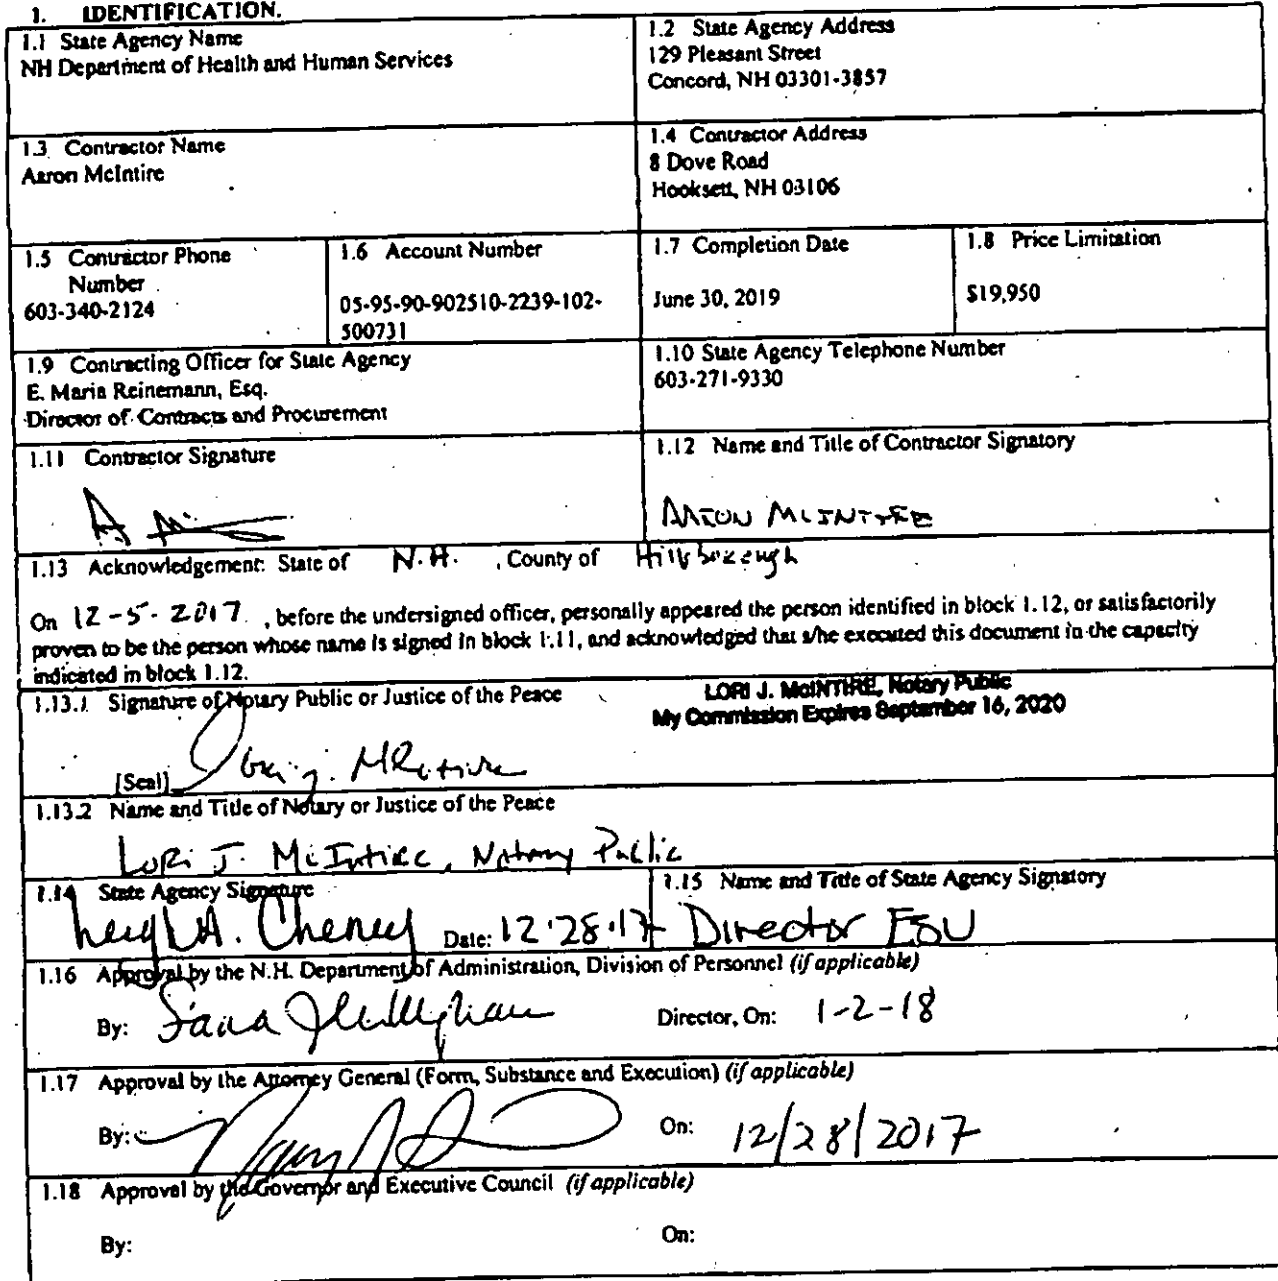 1. IDENTIFICATION.
1.1 State Agency Name
NH Department of Health and Human Services
1.2 State Agency Address
129 Pleasant Street
Concord, NH 03301-3857
1.3 Contractor Name
Aaron McIntire
1.4 Contractor Address
8 Dove Road
Hooksett, NH 03106
1.5 Contractor Phone
Number
603-340-2124
1.6 Account Number
05-95-90-902510-2239-102-
500731
1.7 Completion Date
June 30, 2019
1.8 Price Limitation
$19,950
1.9 Contracting Officer for State Agency
E. Maria Reinemann, Esq.
Director of Contracts and Procurement
1.10 State Agency Telephone Number
603-271-9330
1.11 Contractor Signature
1.12 Name and Title of Contractor Signatory
AARON MCINTIRE
1.13 Acknowledgement: State of N.H. , County of Hillsborough
On 12-5-2017 , before the undersigned officer, personally appeared the person identified in block 1.12, or satisfactorily
proven to be the person whose name is signed in block 1.11, and acknowledged that s/he executed this document in the capacity
indicated in block 1.12.
1.13.1 Signature of Notary Public or Justice of the Peace
LORI J. McINTIRE, Notary Public
My Commission Expires September 16, 2020
[Seal] Lori J. McIntire
1.13.2 Name and Title of Notary or Justice of the Peace
Lori J. McIntire, Notary Public
1.14 State Agency Signature
Cheney Date: 12·28·17
1.15 Name and Title of State Agency Signatory
Director
1.16 Approval by the N.H. Department of Administration, Division of Personnel (if applicable)
By: Director, On: 1-2-18
1.17 Approval by the Attorney General (Form, Substance and Execution) (if applicable)
By: On: 12/28/2017
1.18 Approval by the Governor and Executive Council (if applicable)
By: On: